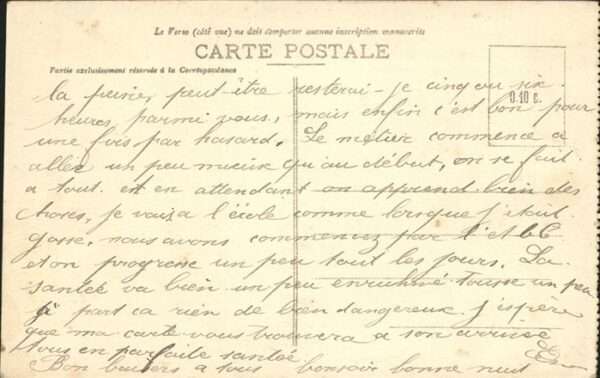 Le Verso (côté vue) ne doit comporter aucune inscription manuscrite
CARTE POSTALE
Partie exclusivement réservée à la Correspondance
0.10 c.
la peur, peut-être resterai-je cinq ou six
heures, parmi vous, mais enfin c'est bon pour
une fois par hasard. Le métier commence a
aller un peu mieux qu'au début, on se fait
a tout. est en attendant on apprend bien des
choses, je vais a l'école comme lorsque j'étais
gosse, nous avons commencez par l'ABC
et on progresse un peu tout les jours. La
santée va bien un peu enrhumé tousse un peu
à part ca rien de bien dangereux. J'espère
que ma carte vous trouvera a son arrivée
tous en parfaite santée
Bon baisers a tous bonsoir bonne nuit